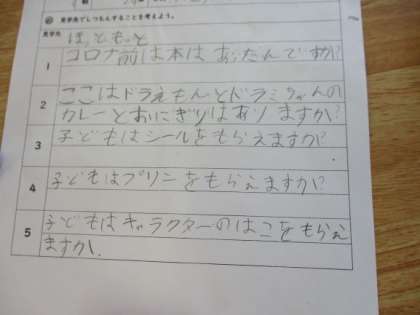 見学先でしつもんすることを考えよう。
見学先
ほっともっと
1 コロナ前は本はあったんですか?
2 ここはドラえもんとドラミちゃんの
カレーとおにぎりはありますか?
3 子どもはシールをもらえますか?
4 子どもはプリンをもらえますか?
5 子どもはキャラクターのはこをもらえ
ますか.